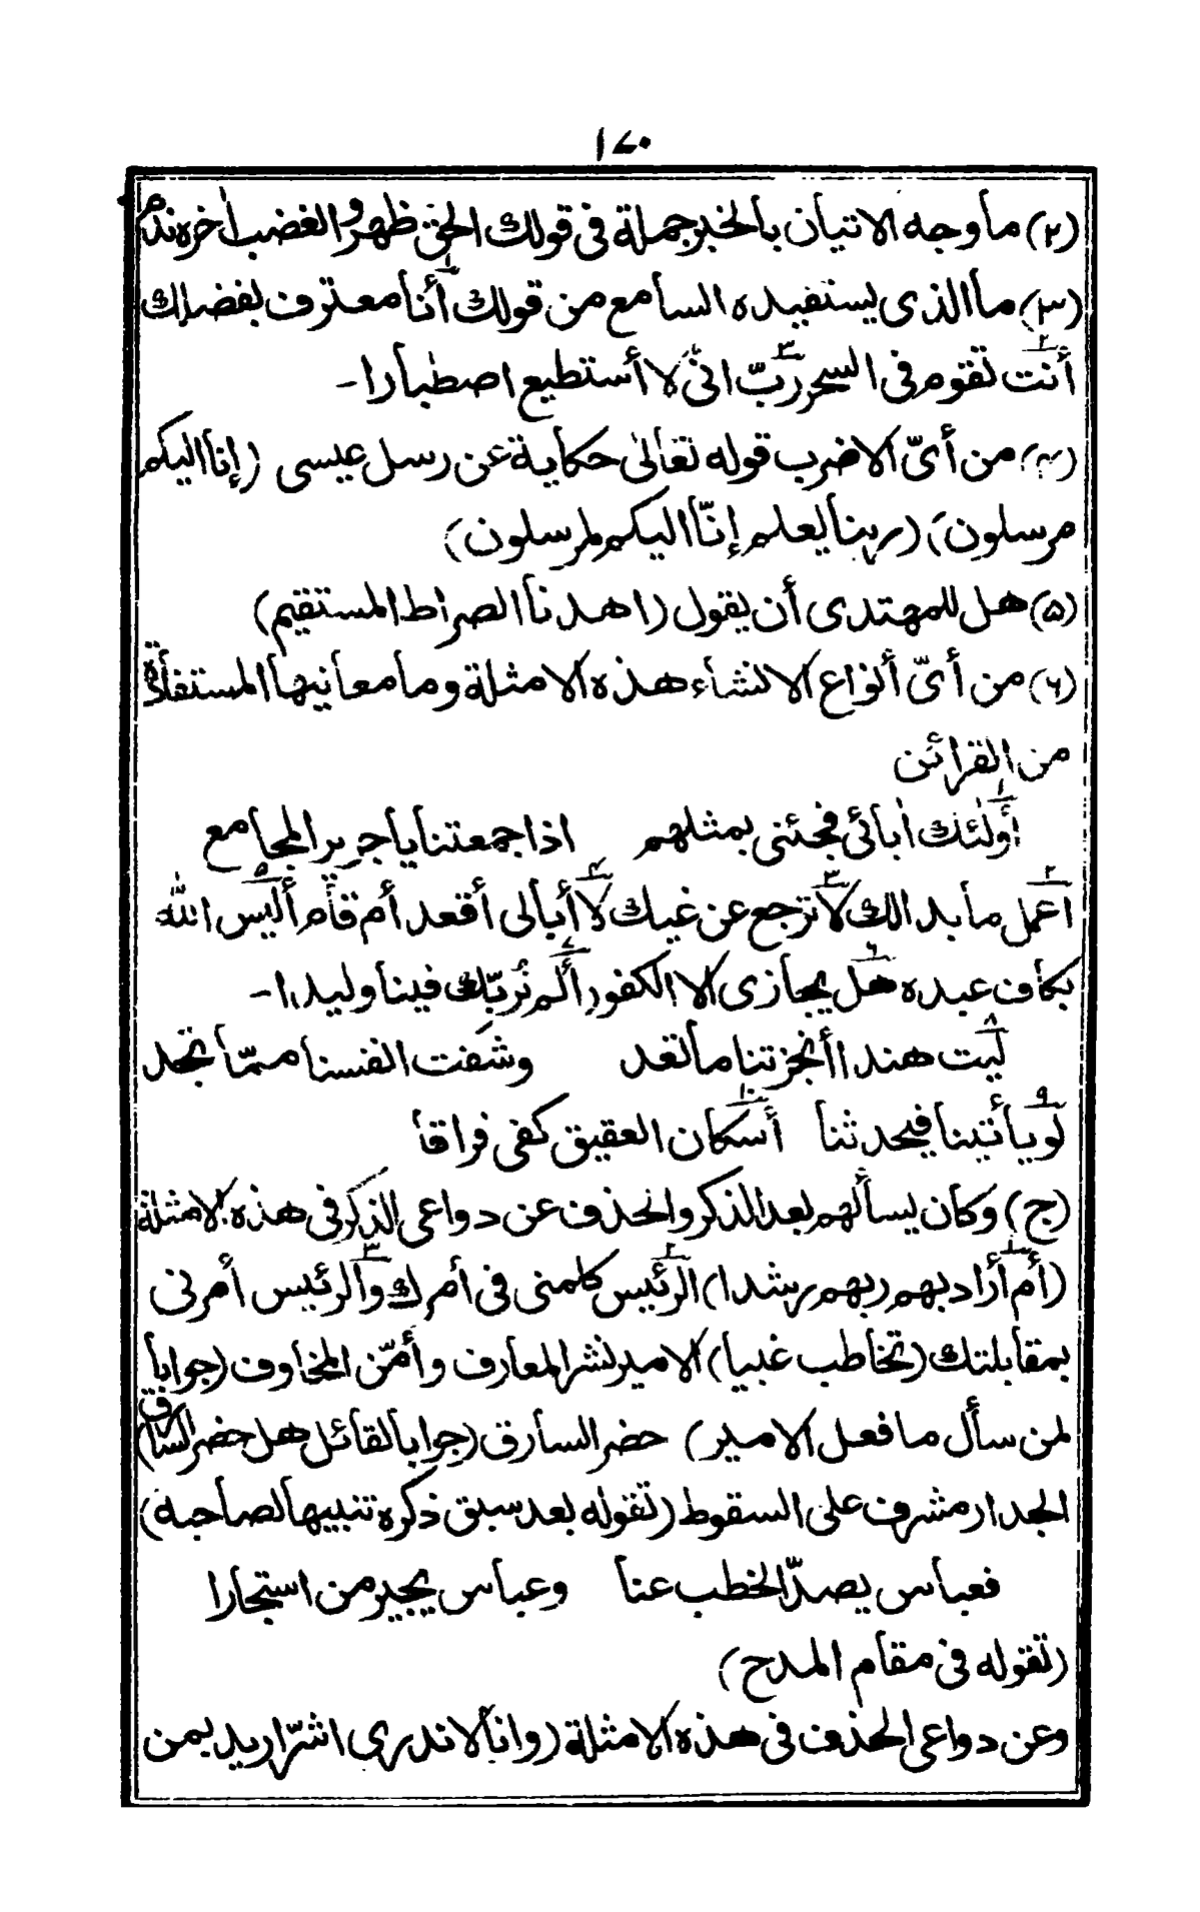 ١٧٠
(٢) ما وجه الاتيان بالخبر جملة فى قولك الحق ظهر والغضب اٰخره ندم
(٣) ما الذى يستفيده السامع من قولك ١أنا معترف بفضلك
٢أنت تقوم فى السحر ٣ربّ انّى لا أستطيع اصطبارا-
(٤) من أىّ الاضرب قوله تعالىٰ حكاية عن رسل عيسى (إنا اليكم
مرسلون) (ربنا يعلم إنّا اليكم لمرسلون)
(۵) هل للمهتدى أن يقول (اهدنا الصراط المستقيم)
(۶) من أىّ أنواع الانشاء هذه الامثلة وما معانيها المستفادة
من القرائن
١أولئك اٰبائى فجئنى بمثلهم اذا جمعتنا يا جرير المجامع
٢اعمل ما بدا لك ٣لا ترجع عن غيك ٤لا أبالى أقعد أم قام ۵أليس الله
بكاف عبده ۶هل يجازى الا الكفور ٧ألم نُربّك فينا وليدا-
٨ليت هندا أنجزتنا ما تعد وشفت انفسنا ممّا تجد
٩لو يأتينا فيحدثنا ١٠أسكان العقيق كفى فراقا
(ج) وكأن يسألهم بعد الذكر والحذف عن دواعى الذكر فى هذه الامثلة
(١أم أراد بهم ربهم رشدا) ٢الرئيس كلمنى فى أمرك ٣والرئيس أمرنى
بمقابلتك (تخاطب غبيا) الامير نشر المعارف وأمّن المخاوف (جوابا
لمن سأل ما فعل الامير) حضر السارق (جوابا لقائل هل حضر السارق)
الجدار مشرف على السقوط (تقوله بعد سبق ذكره تنبيها لصاحبه)
فعباس يصدّ الخطب عنا وعباس يجير من استجارا
(تقوله فى مقام المدح)
وعن دواعى الحذف فى هذه الامثلة (وانا لا ندرى اشرّ اريد بمن